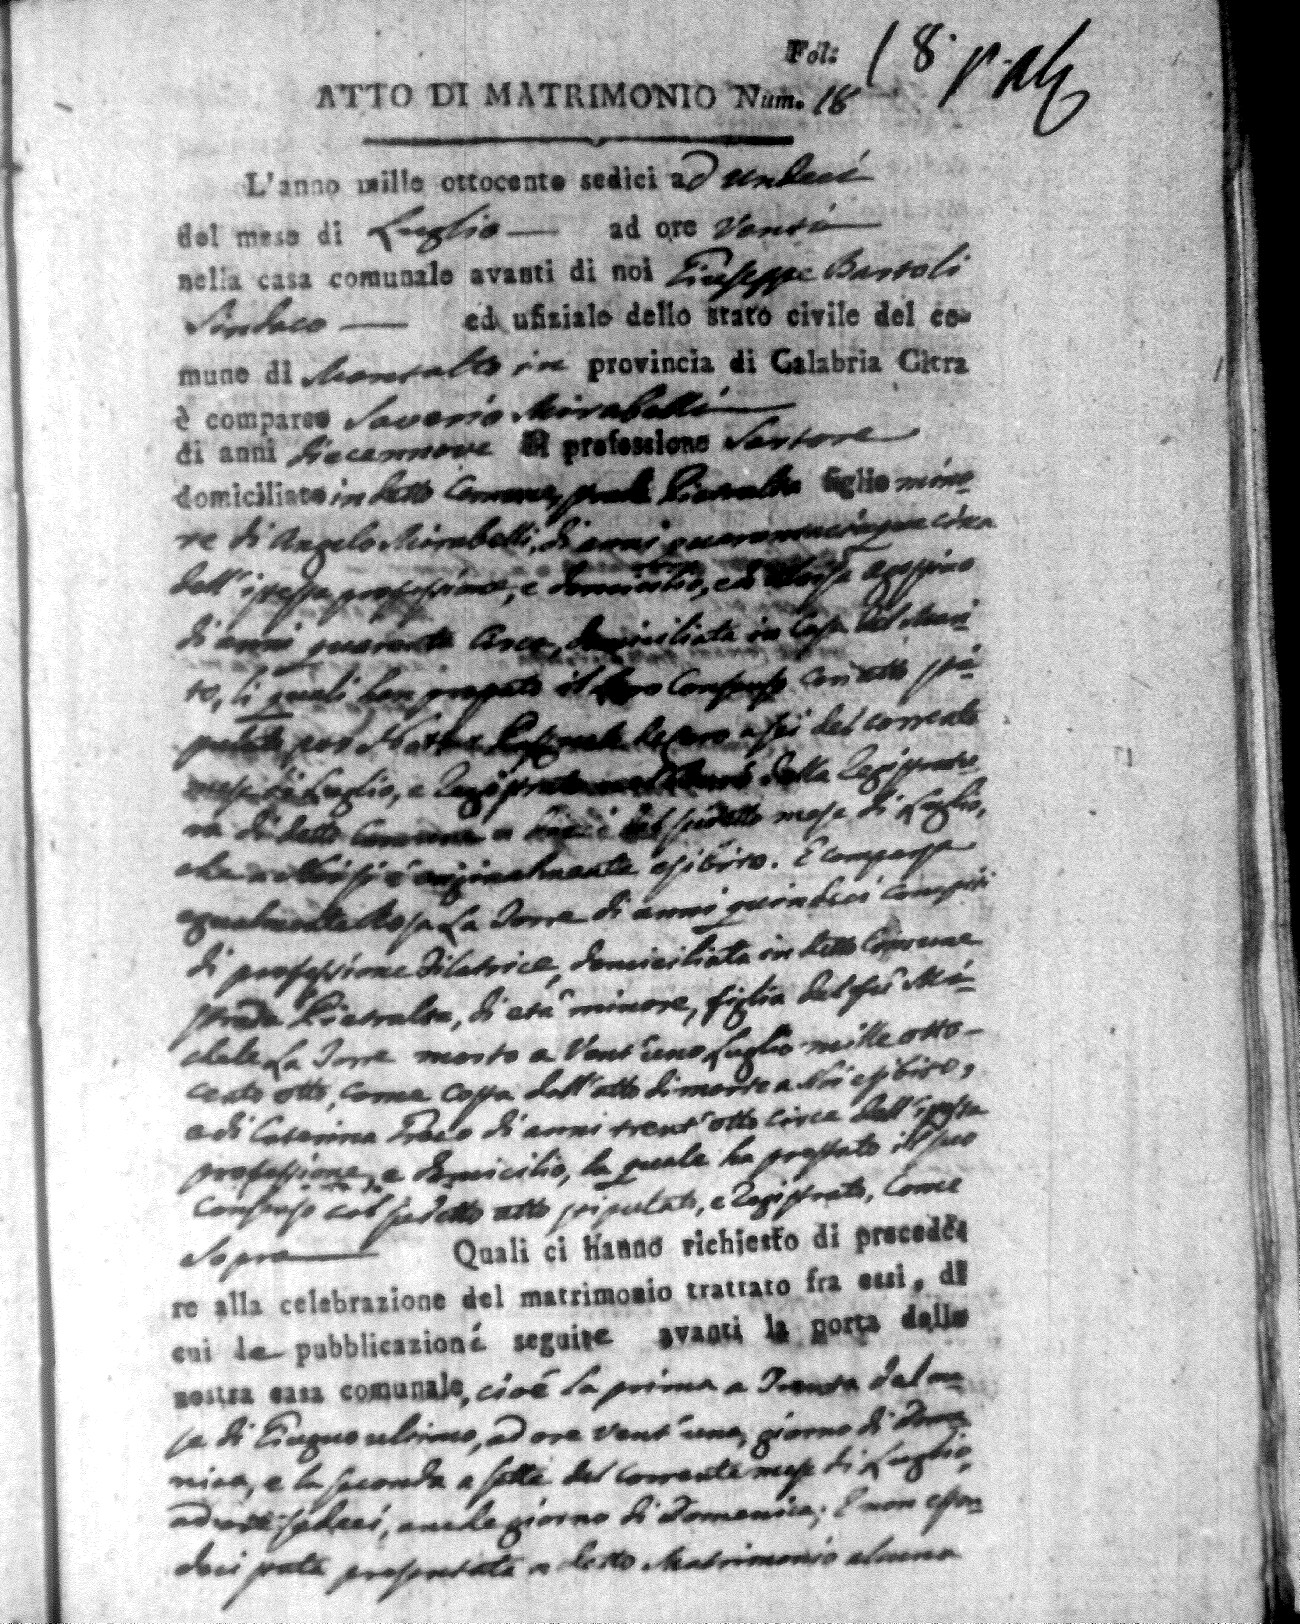 Fol: 18
ATTO DI MATRIMONIO Num. 18
L'anno mille ottocento sedici ad undeci
del mese di Luglio — ad ore venti
nella casa comunale avanti di noi Giuseppe Bartoli
Sindaco — ed ufiziale dello stato civile del co-
mune di Montalto in provincia di Calabria Citra
è comparso Saverio Mirabelli
di anni diecennove di professione Sartore
domiciliato in detto Comune, strada Pietralta figlio mino-
re di Angelo Mirabelli, di anni quarantacinque circa
dell'istessa professione, e domicilio, e di
di anni quaranta circa, domiciliata in Casa del Mari-
to, li quali han prestato il loro Consenso con atto sti-
pulato per Notar Pasquale a sei del corrente
mese di Luglio, e registrato nella registratu-
ra di detto Comune a dieci del sudetto mese di Luglio,
che a Noi si è originalmente esibito. E comparsa
egualmente Rosa La Torre di anni quindeci compiti
di professione Filatrice, domiciliata in detto Comune
strada Pietralta, di età minore, figlia del fù Mi-
chele La Torre morto a vent'uno Luglio mille otto-
cento otto, come costa dall'atto di morte a Noi esibito,
e di Caterina Greco di anni trent'otto circa dell'istessa
professione, e domicilio, la quale ha prestato il suo
Consenso col sudetto atto stipulato, e registrato, come
Sopra — Quali ci hanno richiesto di procede-
re alla celebrazione del matrimonio trattato fra essi, di
cui le pubblicazioni seguite avanti la porta della
nostra casa comunale, cioè la prima a Trenta del me-
se di Giugno ultimo, ad ore vent'una, giorno di Dome-
nica, e la seconda a sette del corrente mese di Luglio,
ad ore sedeci, anche giorno di Domenica; E non essen-
doci stata presentata a detto Matrimonio alcuna